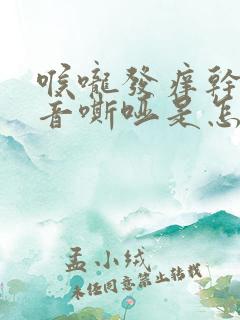 喉嚨發痒幹
音嘶啞是怎
孟小绒
未经同意禁止转载